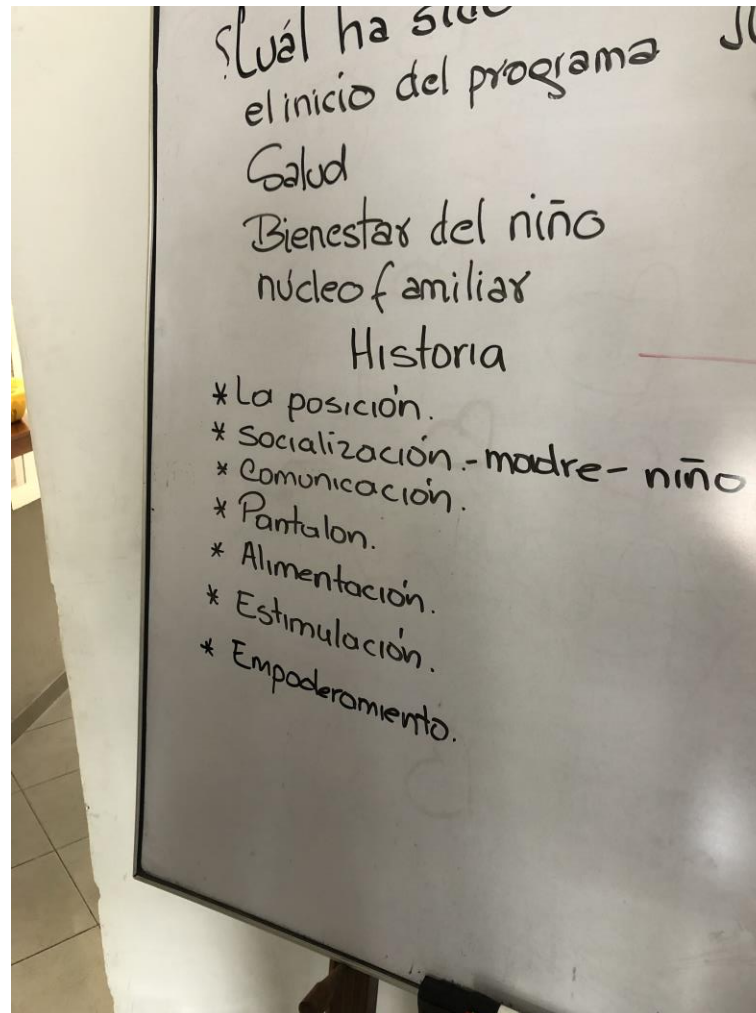 ¿Cuál ha sido
el inicio del programa
Salud
Bienestar del niño
núcleo familiar
Historia
*La posición.
* Socialización.-madre- niño
* Comunicación.
* Pantalon.
* Alimentación.
* Estimulación.
* Empoderamiento.